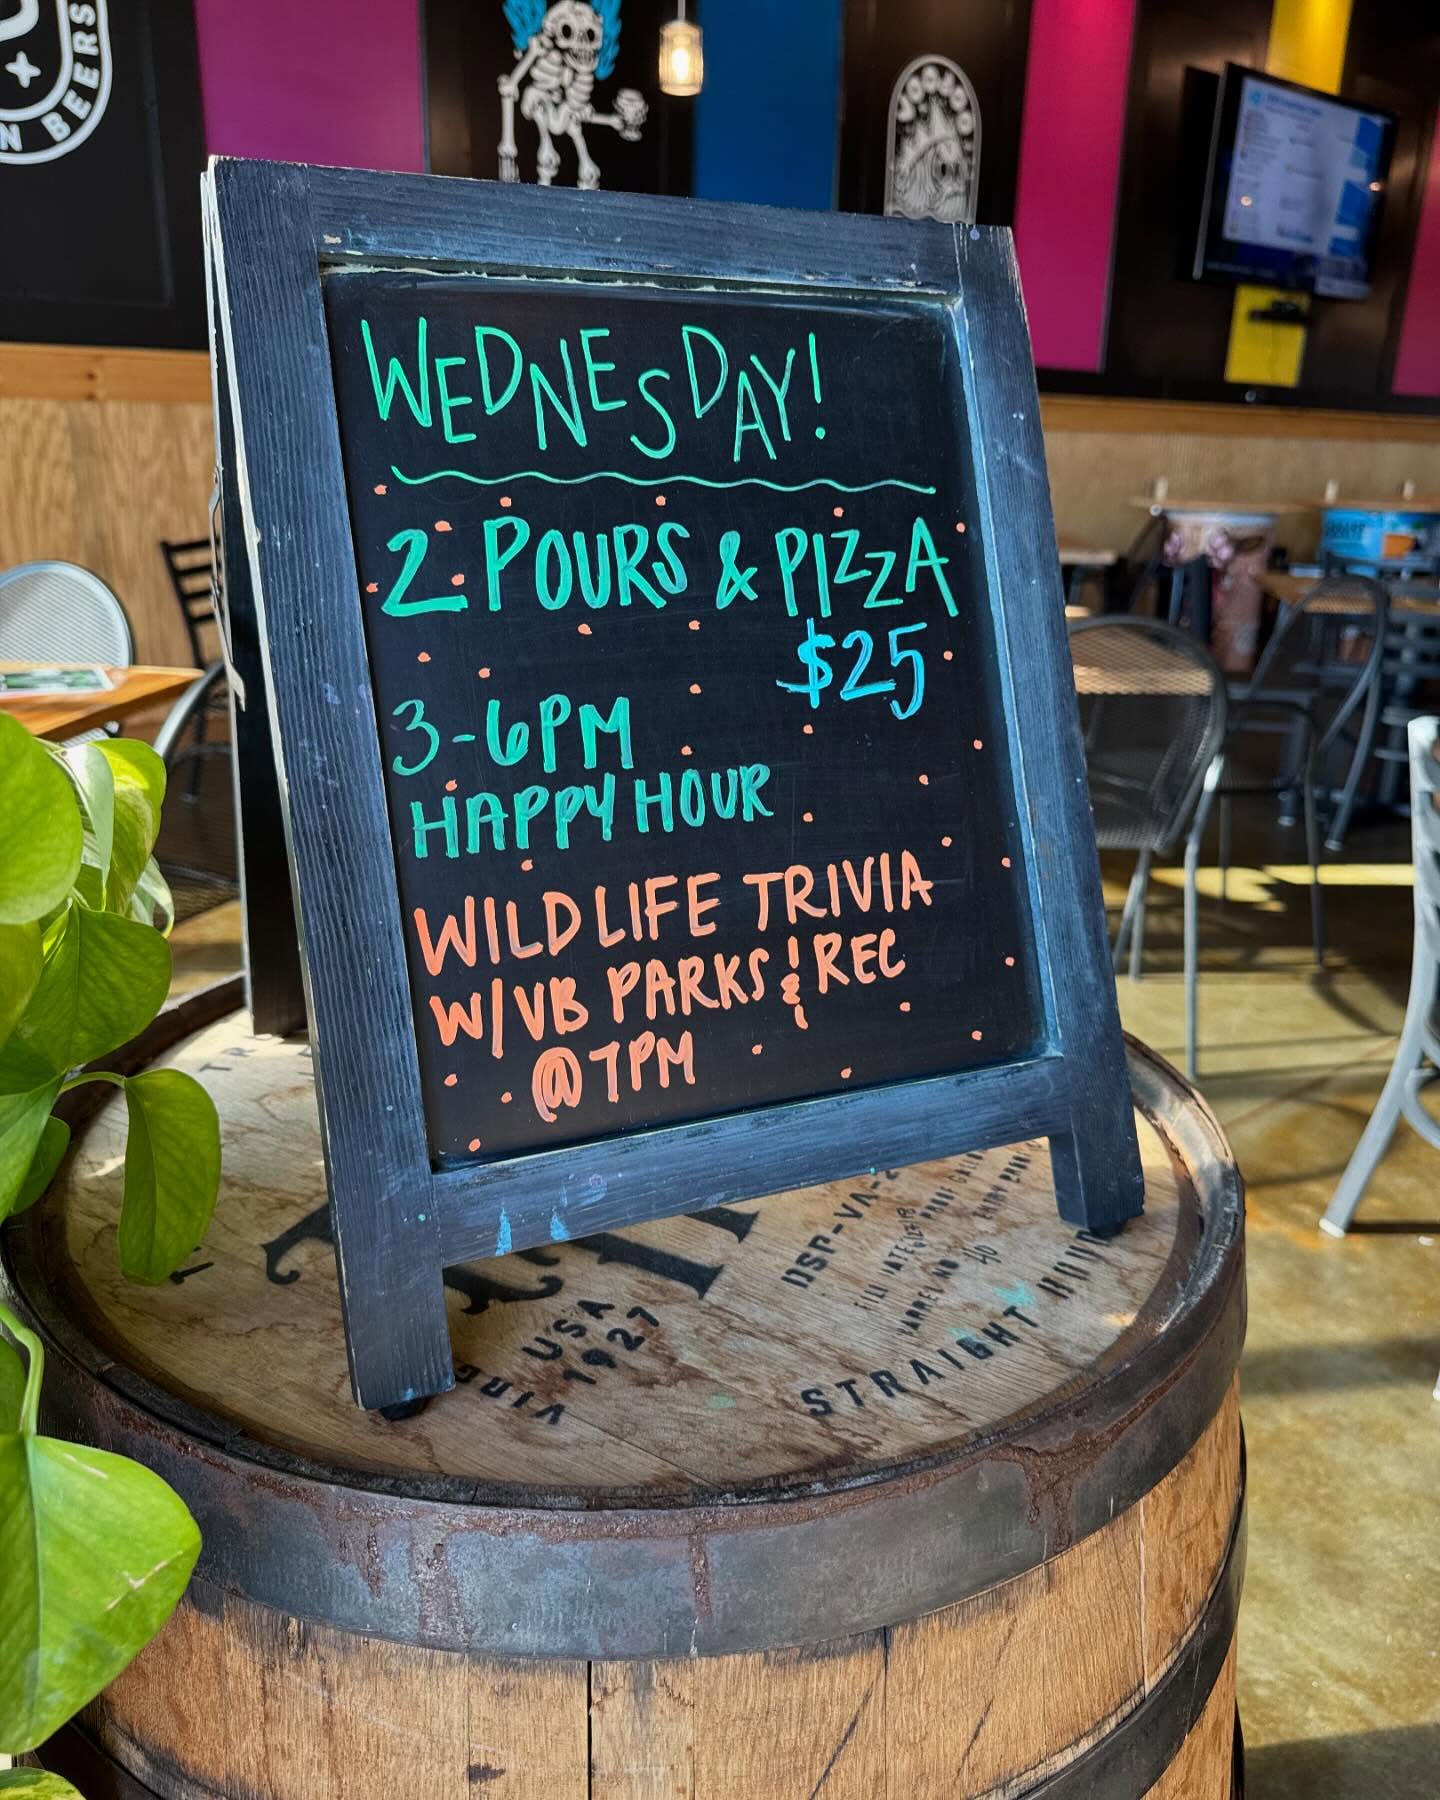 N BEERS
VOODOO
WEDNESDAY!
2 POURS & PIZZA
$25
3-6PM
HAPPY HOUR
WILDLIFE TRIVIA
W/VB PARKS & REC
@ 7PM
DSP-VA-2
USA
1927
STRAIGHT